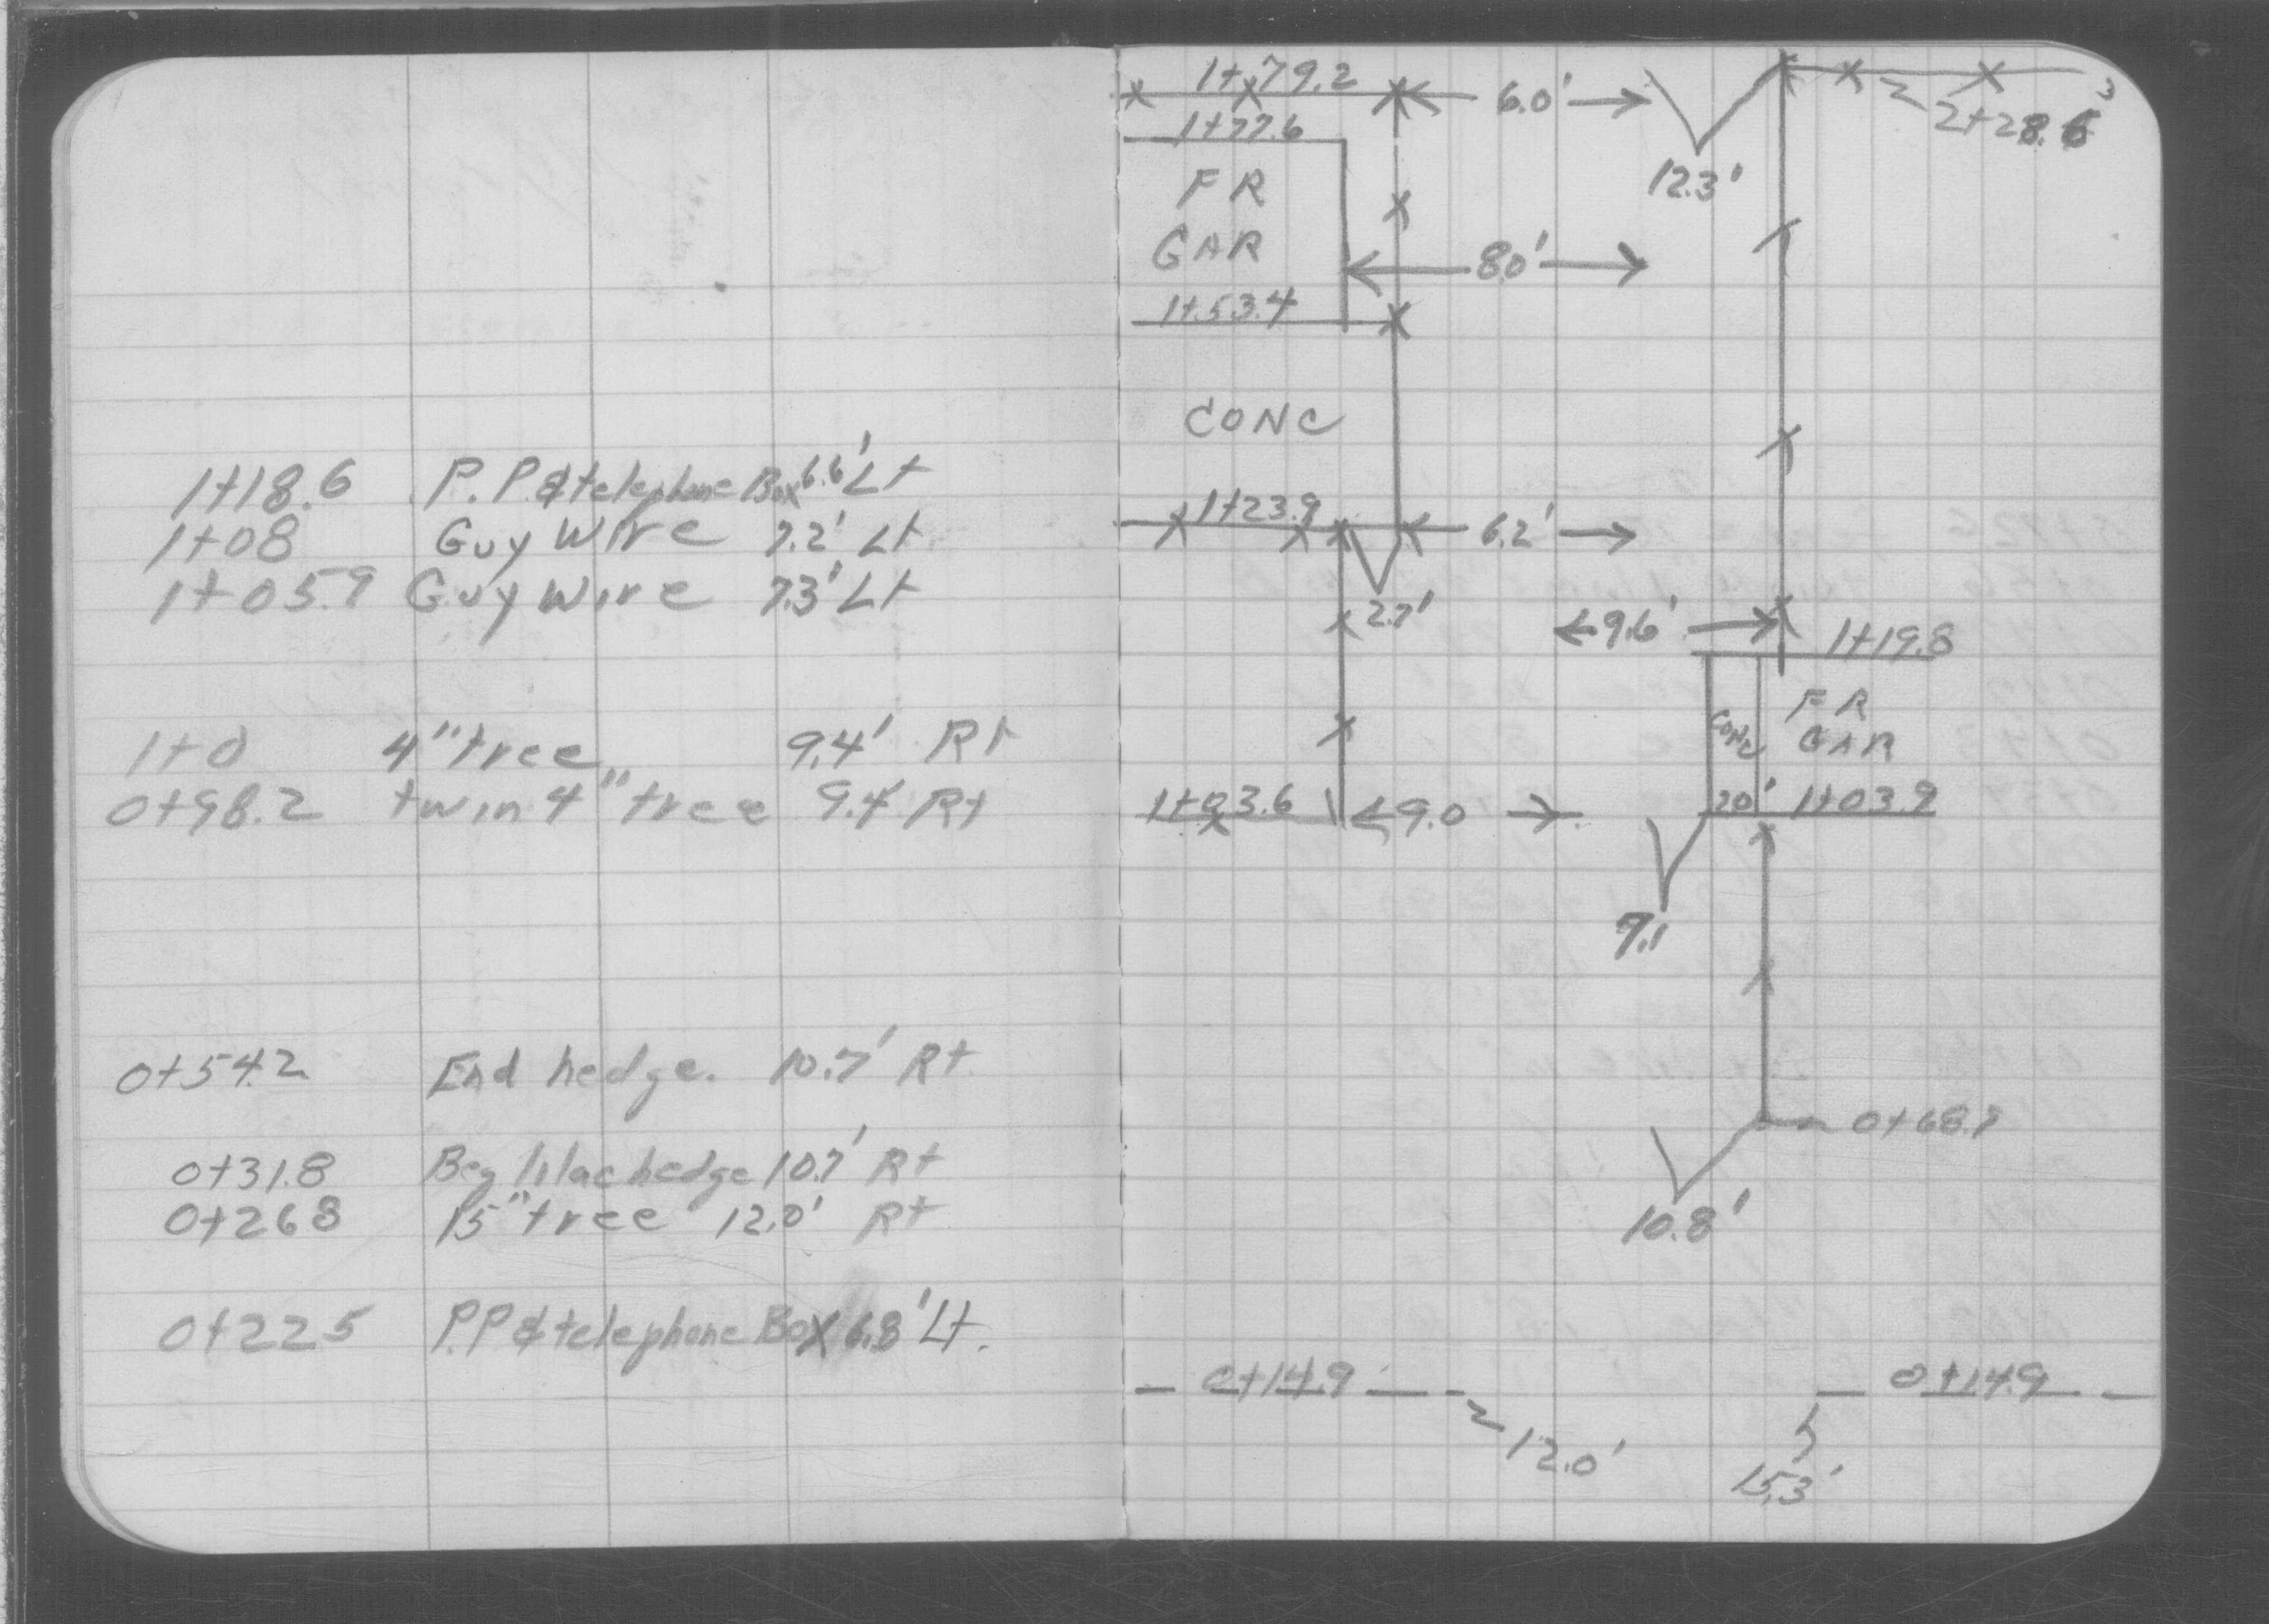 1+18.6 P.P & telephone Box 6.6' Lt
1+08 Guy Wire 7.2' Lt
1+05.9 Guy Wire 7.3' Lt
1+0 4" tree 9.4' Rt
0+98.2 twin 4" tree 9.4' Rt
0+54.2 End hedge. 10.7' Rt
0+31.8 Beg lilac hedge 10.7' Rt
0+26.8 15" tree 12.0' Rt
0+22.5 P.P & telephone Box 6.8' Lt.
1+79.2 6.0'
1+77.6 2+28.6
12.3'
FR
GAR 8.0'
1+53.4
CONC
1+23.9 6.2'
2.7' 9.6' 1+19.8
CONC FR
GAR
1+03.6 9.0 2.0' 1+03.9
7.1
0+68.9
10.8'
0+14.9 0+14.9
12.0' 15.3'